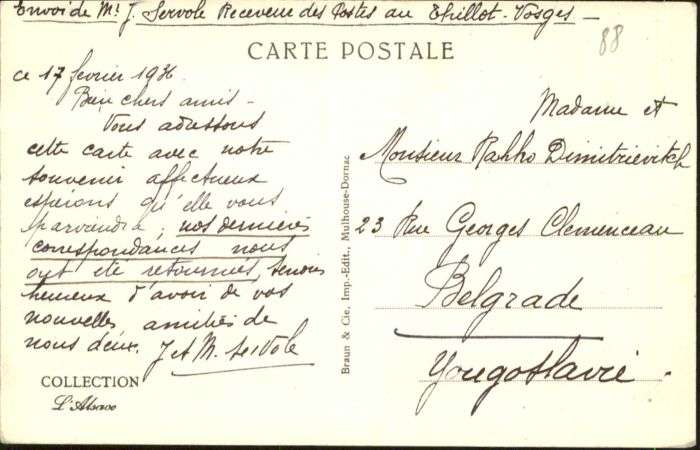 Envoi de Mr J. Servole Receveur des Postes au Thillot - Vosges -
88
CARTE POSTALE
ce 17 février 1936
Bien chers amis -
Vous adressons
cette carte avec notre
souvenir affectueux
espérons qu'elle vous
parviendra, nos dernières
correspondances nous
ont été retournées, serions
heureux d'avoir de vos
nouvelles, amitiés de
nous deux. J et M. Servole
COLLECTION
L'Alsace
Braun & Cie, Imp.-Edit., Mulhouse-Dornac
Madame et
Monsieur Rahko Dimitriévitch
23 Rue Georges Clemenceau
Belgrade
Yougoslavie.